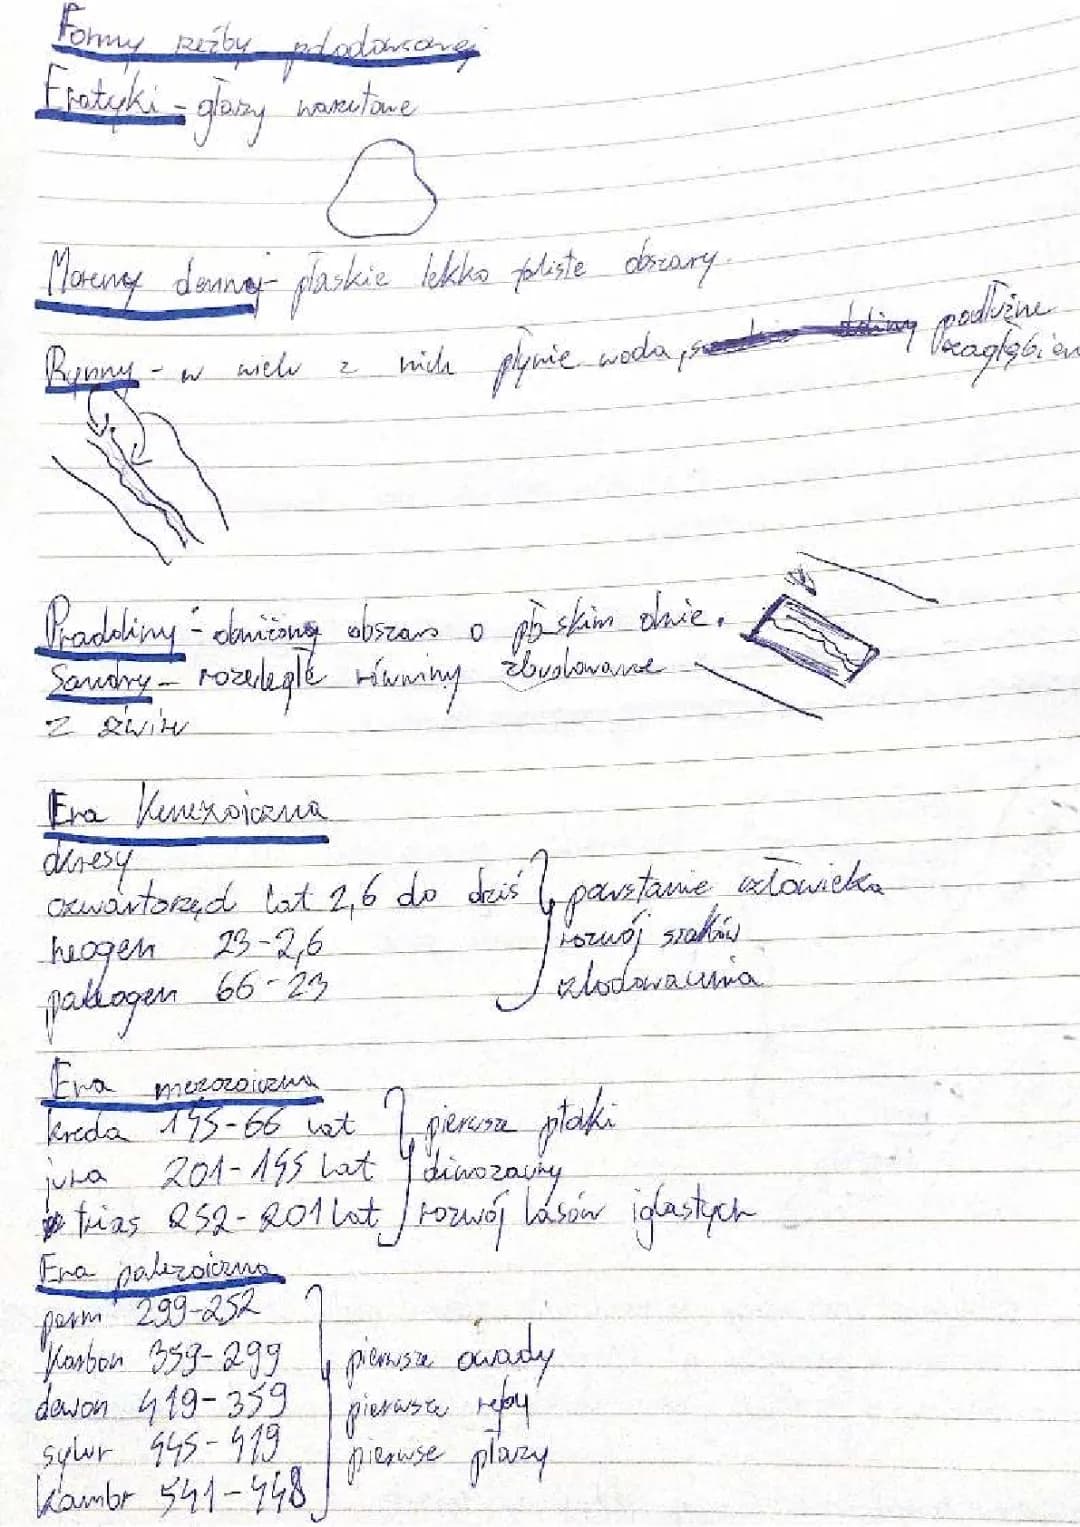 Formy rzeźby polodowcowej
Eratyki - głazy narzutowe
Moreny dennej - płaskie lekko faliste obszary.
Rynny - w wielu z nich płynie woda, podłużne
zagłębien
Pradoliny - obniżony obszar o płaskim dnie.
Sandry - rozległe równiny zbudowane
z żwiru
Era Kenezoiczna
okresy
czwartorzęd lat 2,6 do dziś } powstanie człowieka
neogen 23-2,6 rozwój ssaków
paleogen 66-23 zlodowacenia
Era mezozoiczna
kreda 145-66 lat } pierwsze ptaki
jura 201-145 lat dinozaury
trias 252-201 lat rozwój lasów iglastych
Era palezoiczna
perm 299-252
Karbon 359-299 } pierwsze owady
dewon 419-359 pierwsze ryby
sylur 445-419 pierwse płazy
Kambr 541-448